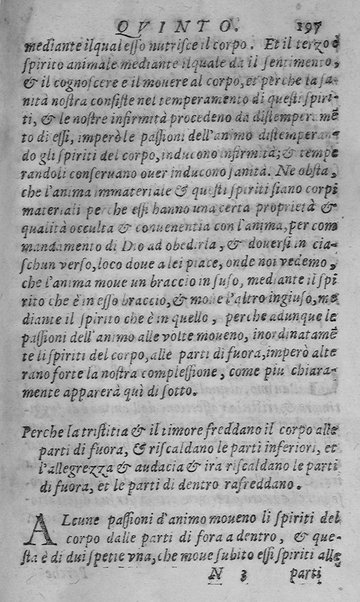 QVINTO. 197
mediante il qual esso nutrisce il corpo. Et il terzo è
spirito animale mediante il quale da il sentimento,
& il cognoscere e il mouere al corpo, et perche la sa-
nità nostra consiste nel temperamento di questi spiri-
ti, & le nostre infirmità procedeno da distemperamē
to di essi, imperò le passioni dell'animo distemperan-
do gli spiriti del corpo, inducono infirmità; & tempe
randoli conseruano ouer inducono sanità. Ne obsta,
che l'anima immateriale & questi spiriti siano corpi
materiali perche essi hanno una certa proprietà &
qualità occulta & conuenentia con l'anima, per com
mandamento di Dio ad obedirla, & douersi in cia-
schun verso, loco doue a lei piace, onde noi vedemo,
che l'anima moue un braccio in suso, mediante il spi
rito che è in esso braccio, & moue l'altro ingiuso, me
diante il spirito che è in quello, perche adunque le
passioni dell'animo alle volte moueno, inordinatamē
te li spiriti del corpo, alle parti di fuora, imperò alte
rano forte la nostra complessione, come più chiara-
mente apparerà quì di sotto.
Perche la tristitia & il timore freddano il corpo alle
parti di fuora, & riscaldano le parti inferiori, et
l'allegrezza & audacia & ira riscaldano le parti
di fuora, et le parti di dentro rafreddano.
ALcune passioni d'animo moueno li spiriti del
corpo dalle parti di fora a dentro, & que-
sta è di dui spetie vna, che moue subito essi spiriti alle
N 3 parti